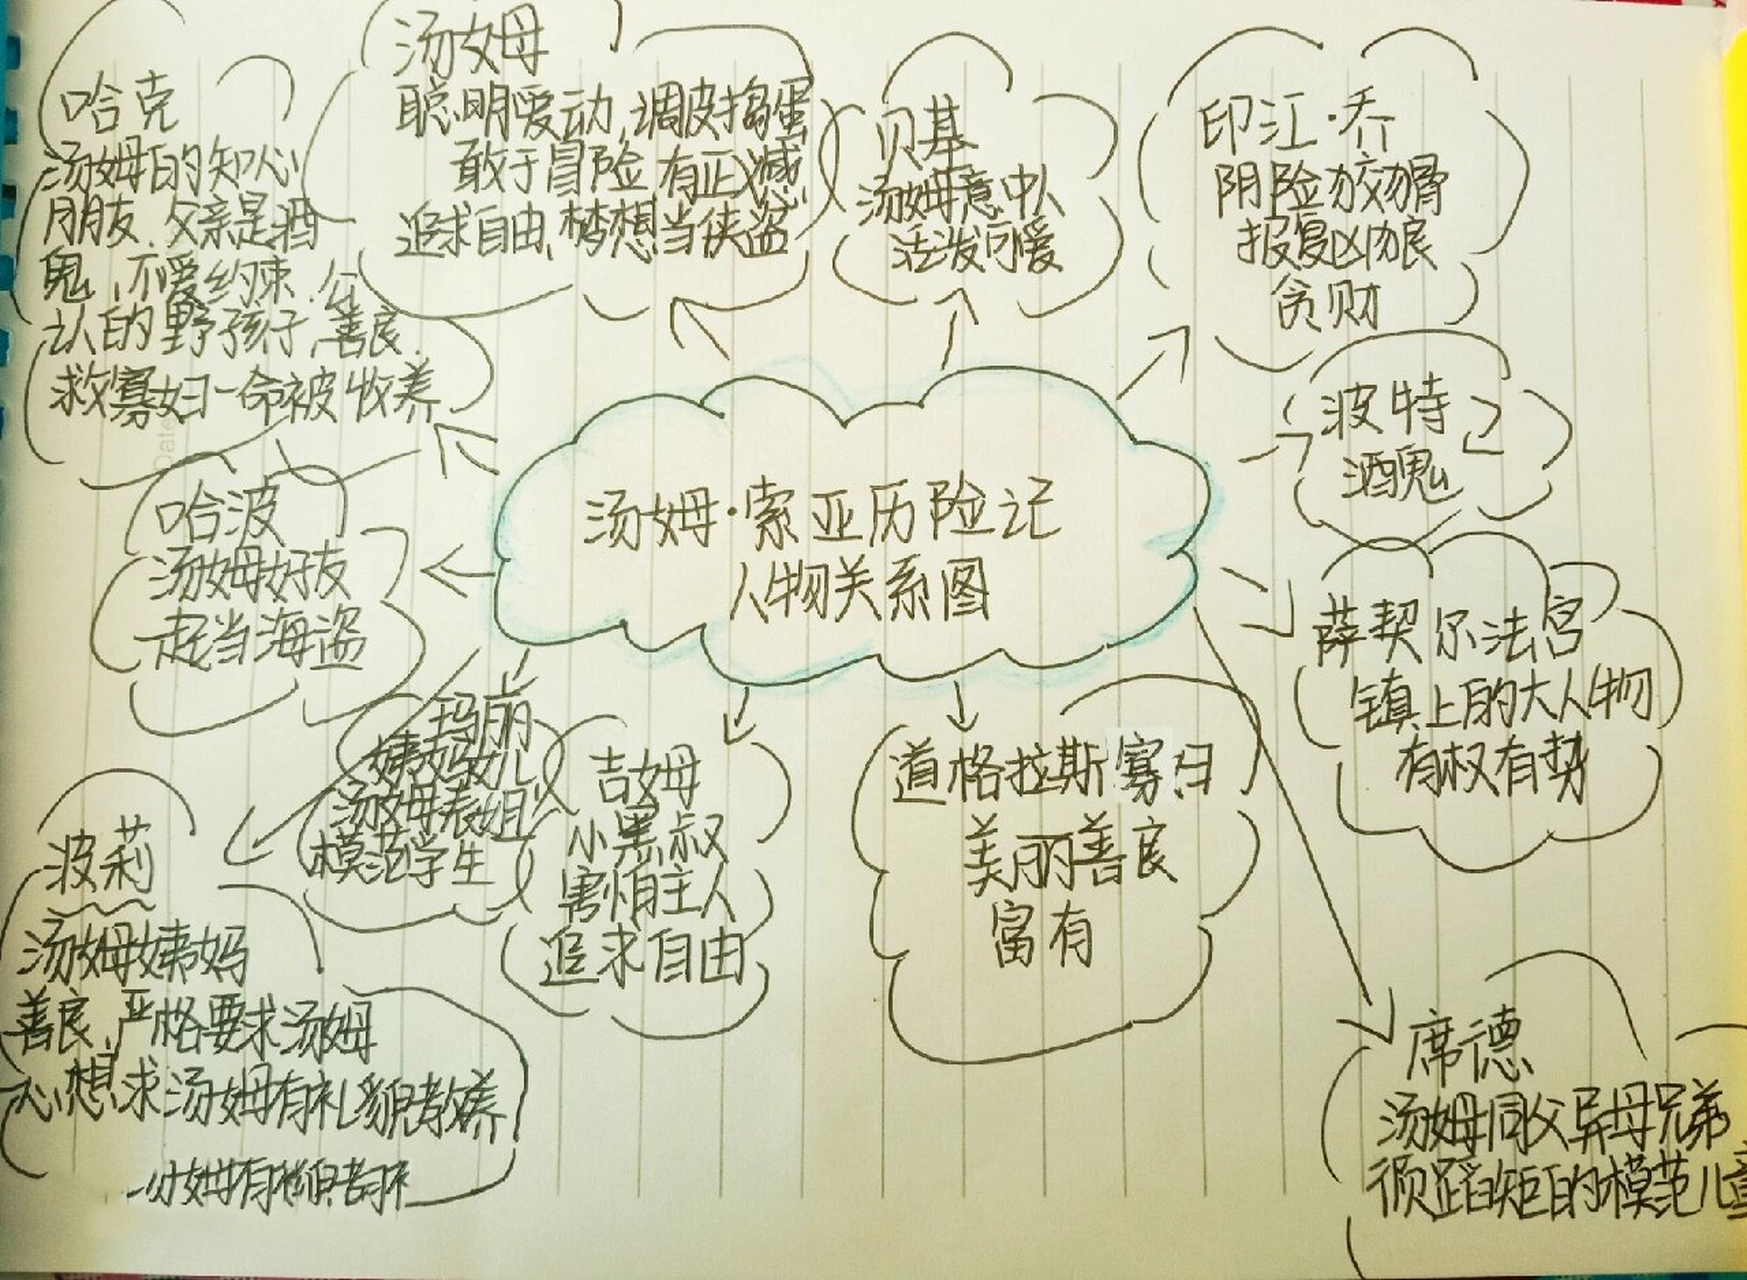 汤姆·索亚历险记
人物关系图
哈克
汤姆的知心
朋友,父亲是酒
鬼,不爱约束,公
认的野孩子,善良
救寡妇一命被收养
汤姆
聪明爱动,调皮捣蛋
敢于冒险,有正义感
追求自由,梦想当侠盗
贝基
汤姆意中人
活泼可爱
印江·乔
阴险狡猾
报复凶狠
贪财
波特
酒鬼
萨契尔法官
镇上的大人物
有权有势
席德
汤姆同父异母兄弟
循蹈矩的模范儿童
道格拉斯寡妇
美丽善良
富有
吉姆
小黑叔
害怕主人
追求自由
玛丽
姨妈女儿
汤姆表姐
模范学生
哈波
汤姆好友
一起当海盗
波莉
汤姆姨妈
善良,严格要求汤姆
心想求汤姆有礼貌教养